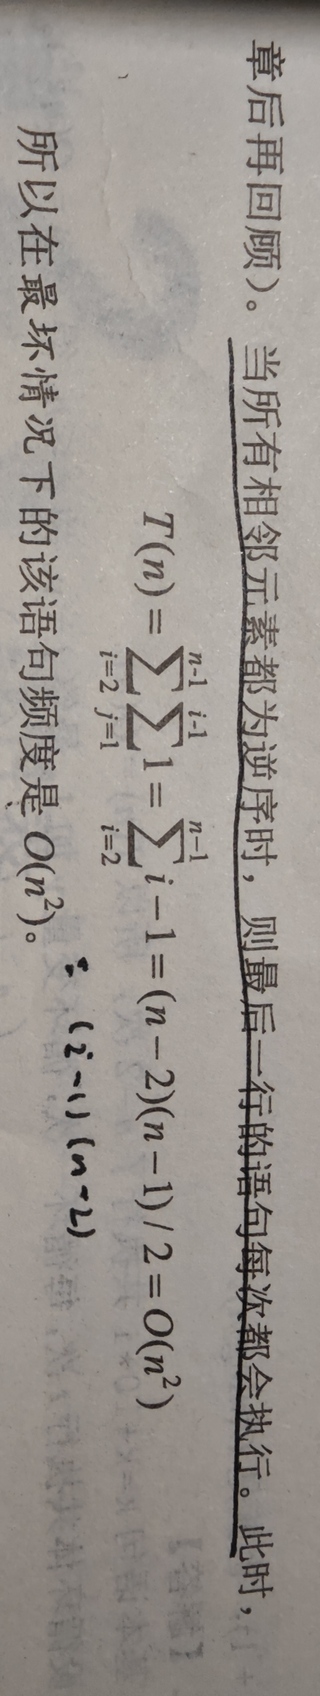 章后再回顾）。当所有相邻元素都为逆序时，则最后一行的语句每次都会执行。此时，
T(n) = \sum_{i=2}^{n-1} \sum_{j=1}^{i-1} 1 = \sum_{i=2}^{n-1} i - 1 = (n - 2)(n - 1) / 2 = O(n^2)
所以在最坏情况下的该语句频度是 O(n^2)。